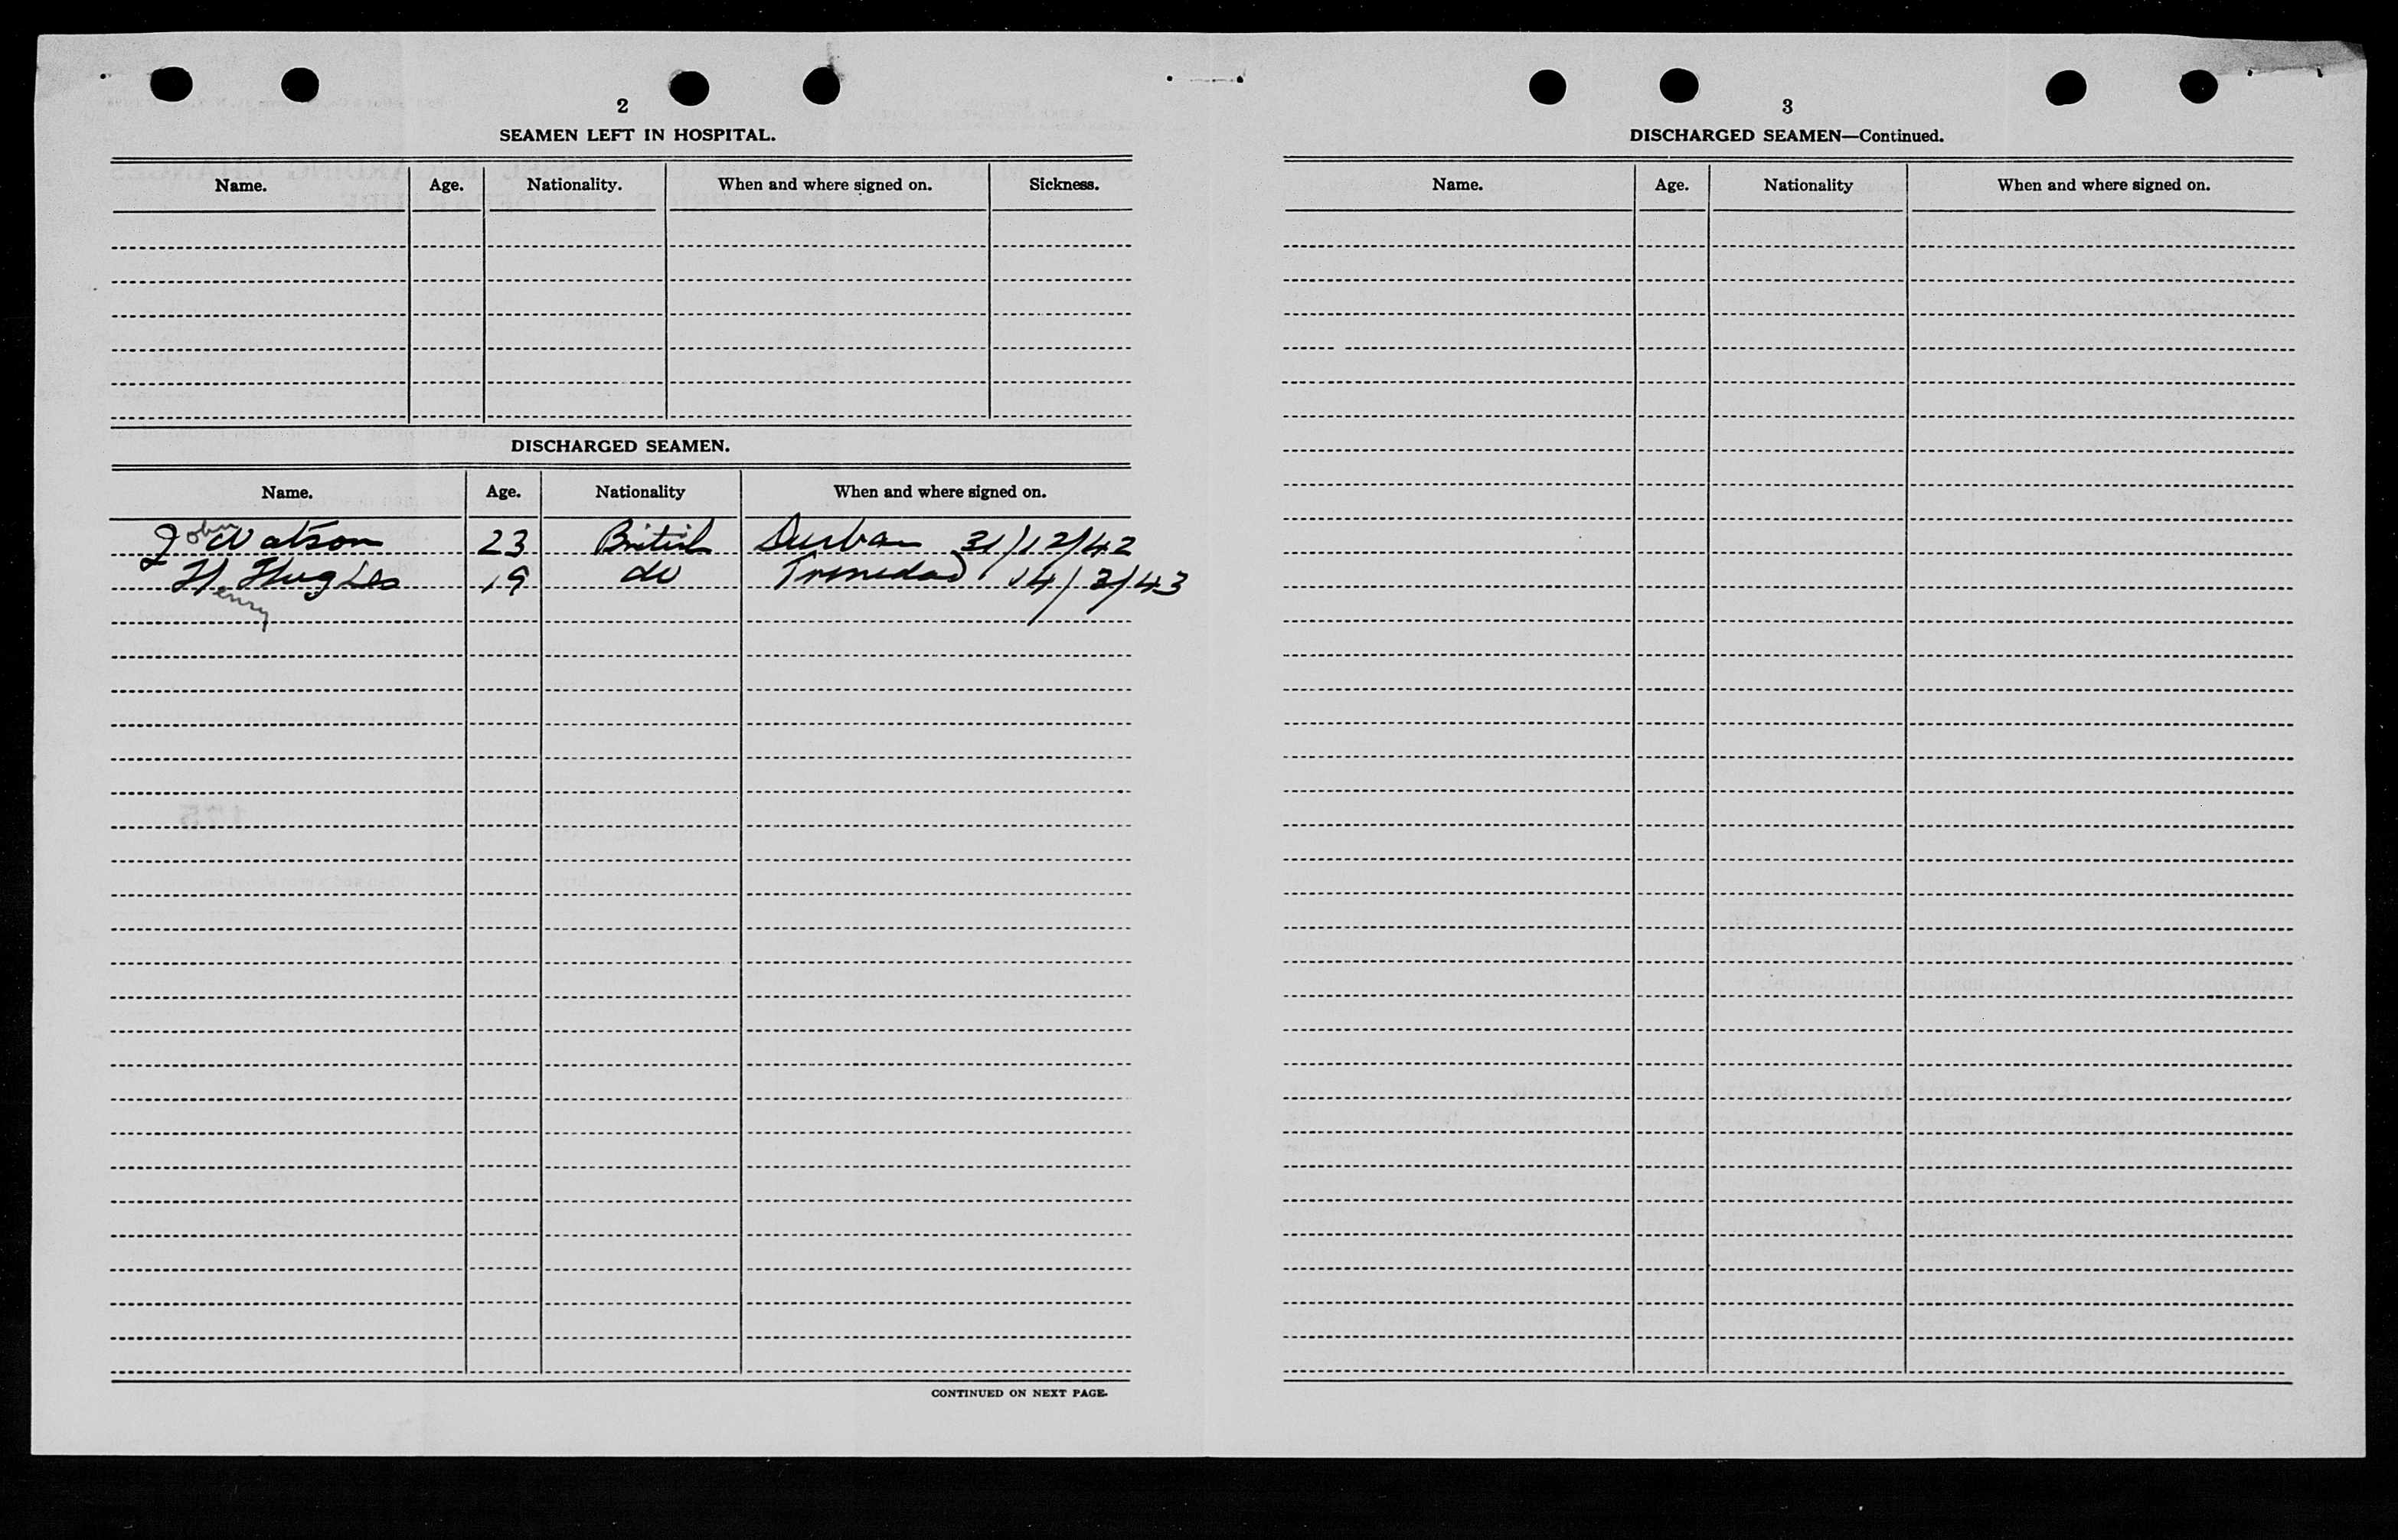 2
SEAMEN LEFT IN HOSPITAL.
Name. Age. Nationality. When and where signed on. Sickness.
DISCHARGED SEAMEN.
Name. Age. Nationality When and where signed on.
John Watson 23 British Durban 31/12/42
H Hughes 19 do Trinedad 14/2/43
enry
CONTINUED ON NEXT PAGE.
3
DISCHARGED SEAMEN—Continued.
Name. Age. Nationality When and where signed on.